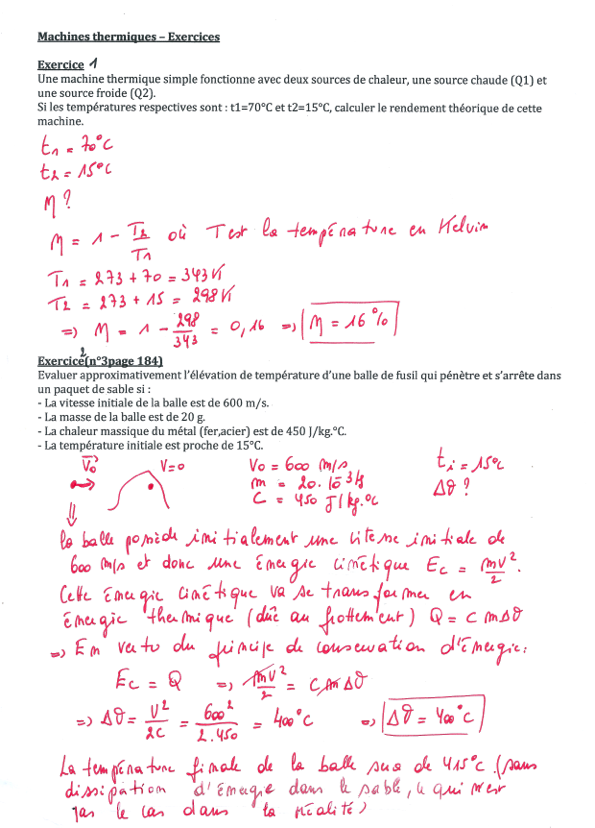 Machines thermiques – Exercices
Exercice 1
Une machine thermique simple fonctionne avec deux sources de chaleur, une source chaude (Q1) et
une source froide (Q2).
Si les températures respectives sont : t1=70°C et t2=15°C, calculer le rendement théorique de cette
machine.
t1 = 70°C
t2 = 15°C
η ?
η = 1 - T2/T1 où T est la température en Kelvin
T1 = 273 + 70 = 343 K
T2 = 273 + 15 = 298 K
=> η = 1 - 298/343 = 0,16 => η = 16 %
Exercice 2 (n°3page 184)
Evaluer approximativement l'élévation de température d'une balle de fusil qui pénètre et s'arrête dans
un paquet de sable si :
- La vitesse initiale de la balle est de 600 m/s.
- La masse de la balle est de 20 g.
- La chaleur massique du métal (fer,acier) est de 450 J/kg.°C.
- La température initiale est proche de 15°C.
V0 V=0 V0 = 600 m/s ti = 15°C
m = 20.10⁻³ kg Δθ ?
C = 450 J/kg.°C
la balle possède initialement une vitesse initiale de
600 m/s et donc une énergie cinétique Ec = mv²/2.
Cette énergie cinétique va se transformer en
énergie thermique (dûe au frottement) Q = c m Δθ
=> En vertu du principe de conservation d'énergie:
Ec = Q => mv²/2 = C m Δθ
=> Δθ = V²/2C = 600²/2.450 = 400°C => Δθ = 400°C
La température finale de la balle sera de 415°C (sans
dissipation d'énergie dans le sable, ce qui n'est
pas le cas dans la réalité)